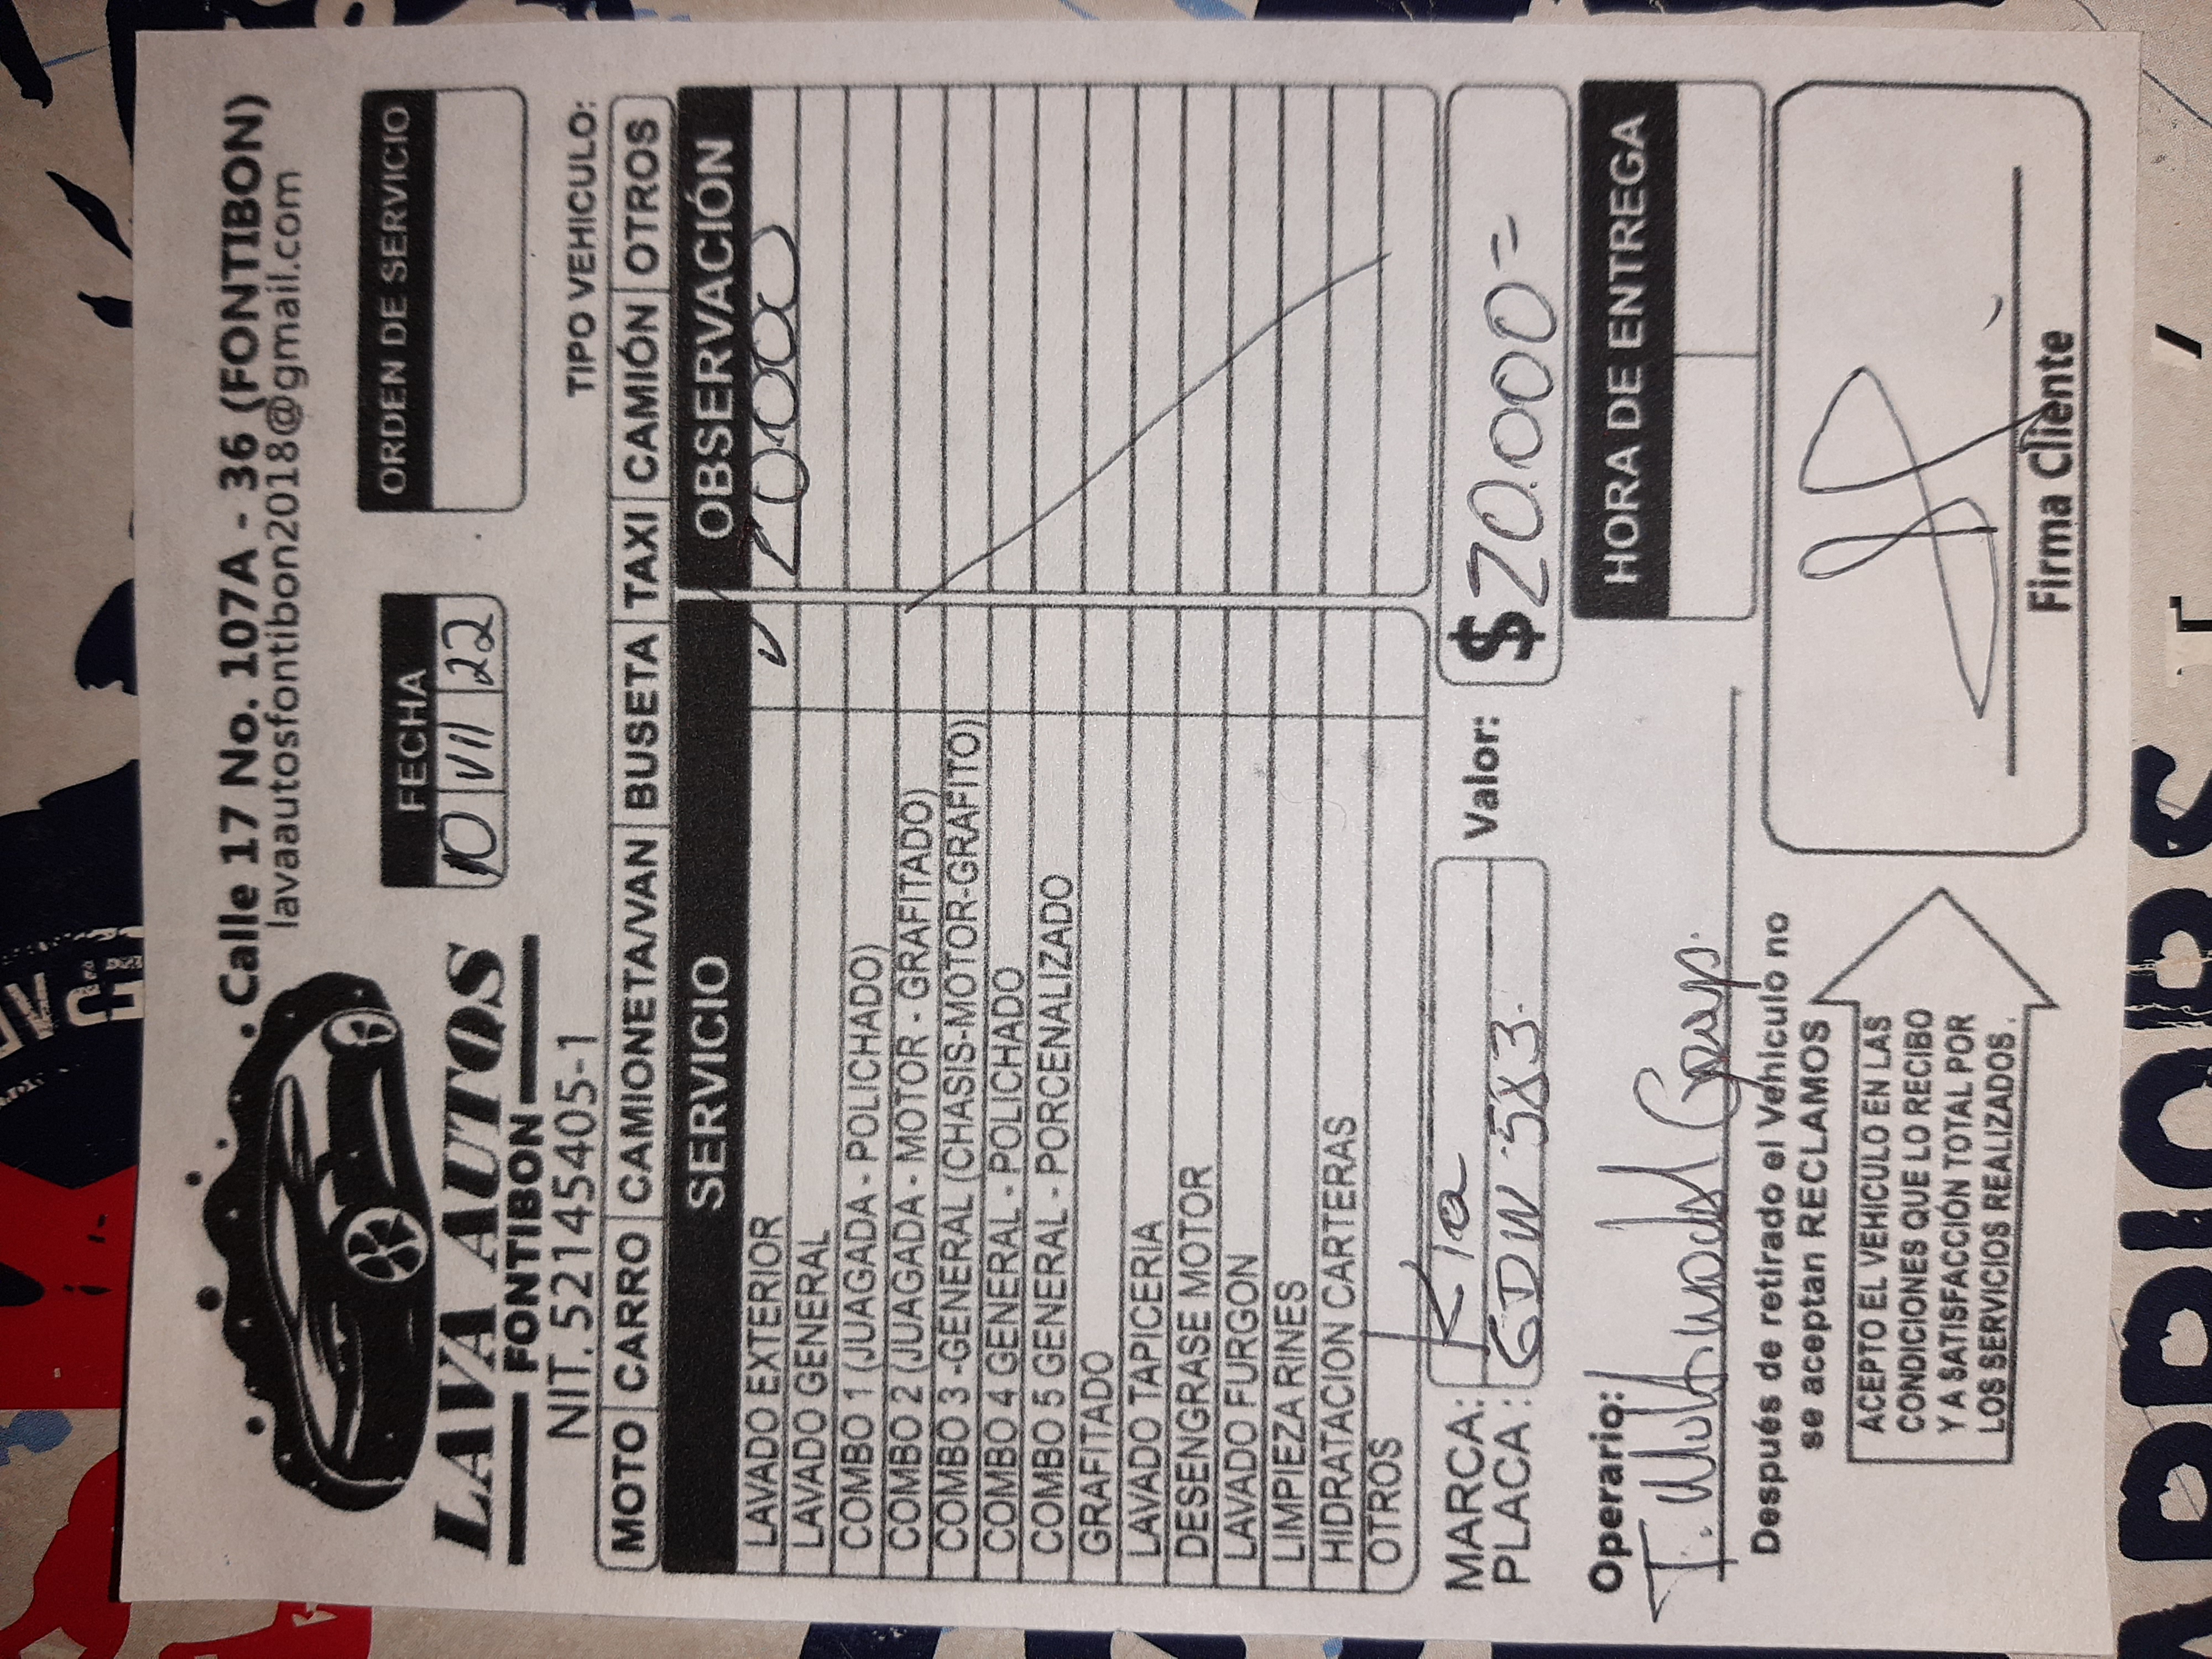 Calle 17 No. 107A - 36 (FONTIBON)
lavaautosfontibon2018@gmail.com
LAVA AUTOS
FONTIBON
NIT. 52145405-1
FECHA
10 VII 22
ORDEN DE SERVICIO
TIPO VEHICULO:
MOTO CARRO CAMIONETA/VAN BUSETA TAXI CAMIÓN OTROS
SERVICIO OBSERVACIÓN
LAVADO EXTERIOR ✓ 20.000
LAVADO GENERAL
COMBO 1 (JUAGADA - POLICHADO)
COMBO 2 (JUAGADA - MOTOR - GRAFITADO)
COMBO 3 -GENERAL (CHASIS-MOTOR-GRAFITO)
COMBO 4 GENERAL - POLICHADO
COMBO 5 GENERAL - PORCENALIZADO
GRAFITADO
LAVADO TAPICERIA
DESENGRASE MOTOR
LAVADO FURGON
LIMPIEZA RINES
HIDRATACION CARTERAS
OTROS
MARCA: Kia
PLACA : GDW 583.
Valor: $ 20.000=
Operario:
HORA DE ENTREGA
Después de retirado el Vehiculo no
se aceptan RECLAMOS
ACEPTO EL VEHICULO EN LAS
CONDICIONES QUE LO RECIBO
Y A SATISFACCIÓN TOTAL POR
LOS SERVICIOS REALIZADOS.
Firma Cliente